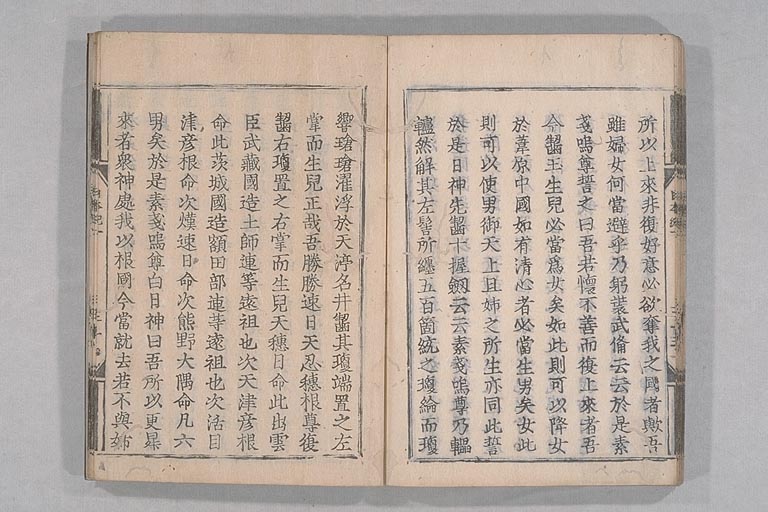 所以上來非復好意必欲奪我之國者歟吾
雖婦女何當避乎乃躬裝武備云云於是素
戔嗚尊誓之曰吾若懷不善而復上來者吾
今齧玉生兒必當爲女矣如此則可以降女
於葦原中國如有清心者必當生男矣如此
則可以使男御天上且姉之所生亦同此誓
於是日神先齧十握劔云云素戔嗚尊乃轠
轤然解其左髻所纏五百箇統之瓊綸而瓊
響瑲瑲濯浮於天渟名井齧其瓊端置之左
掌而生兒正哉吾勝勝速日天忍穗根尊復
齧右瓊置之右掌而生兒天穗日命此出雲
臣武藏國造土師連等遠祖也次天津彦根
命此茨城國造額田部連等遠祖也次活目
津彦根命次熯速日命次熊野大隅命凡六
男矣於是素戔嗚尊白日神曰吾所以更昇
來者衆神處我以根國今當就去若不與姉